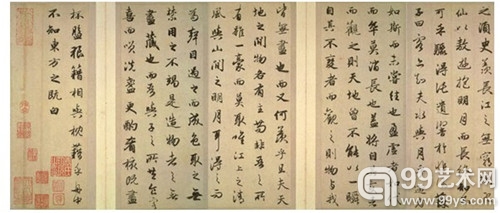 之須臾羨長江之無窮挾飛
仙以遨遊抱明月而長終知不
可乎驟得託遺響於悲風蘇
子曰客亦知夫水與月乎逝者
如斯而未嘗往也盈虛者如彼
而卒莫消長也蓋將自其變者
而觀之則天地曾不能以一瞬
自其不變者而觀之則物與我
皆無盡也而又何羨乎且夫天
地之間物各有主苟非吾之所
有雖一毫而莫取惟江上之清
風與山間之明月耳得之而
為聲目遇之而成色取之無
禁用之不竭是造物者之無
盡藏也而吾與子之所共食客
喜而笑洗盞更酌肴核既盡
杯盤狼藉相與枕藉乎舟中
不知東方之既白
99艺术网
www.99ys.com